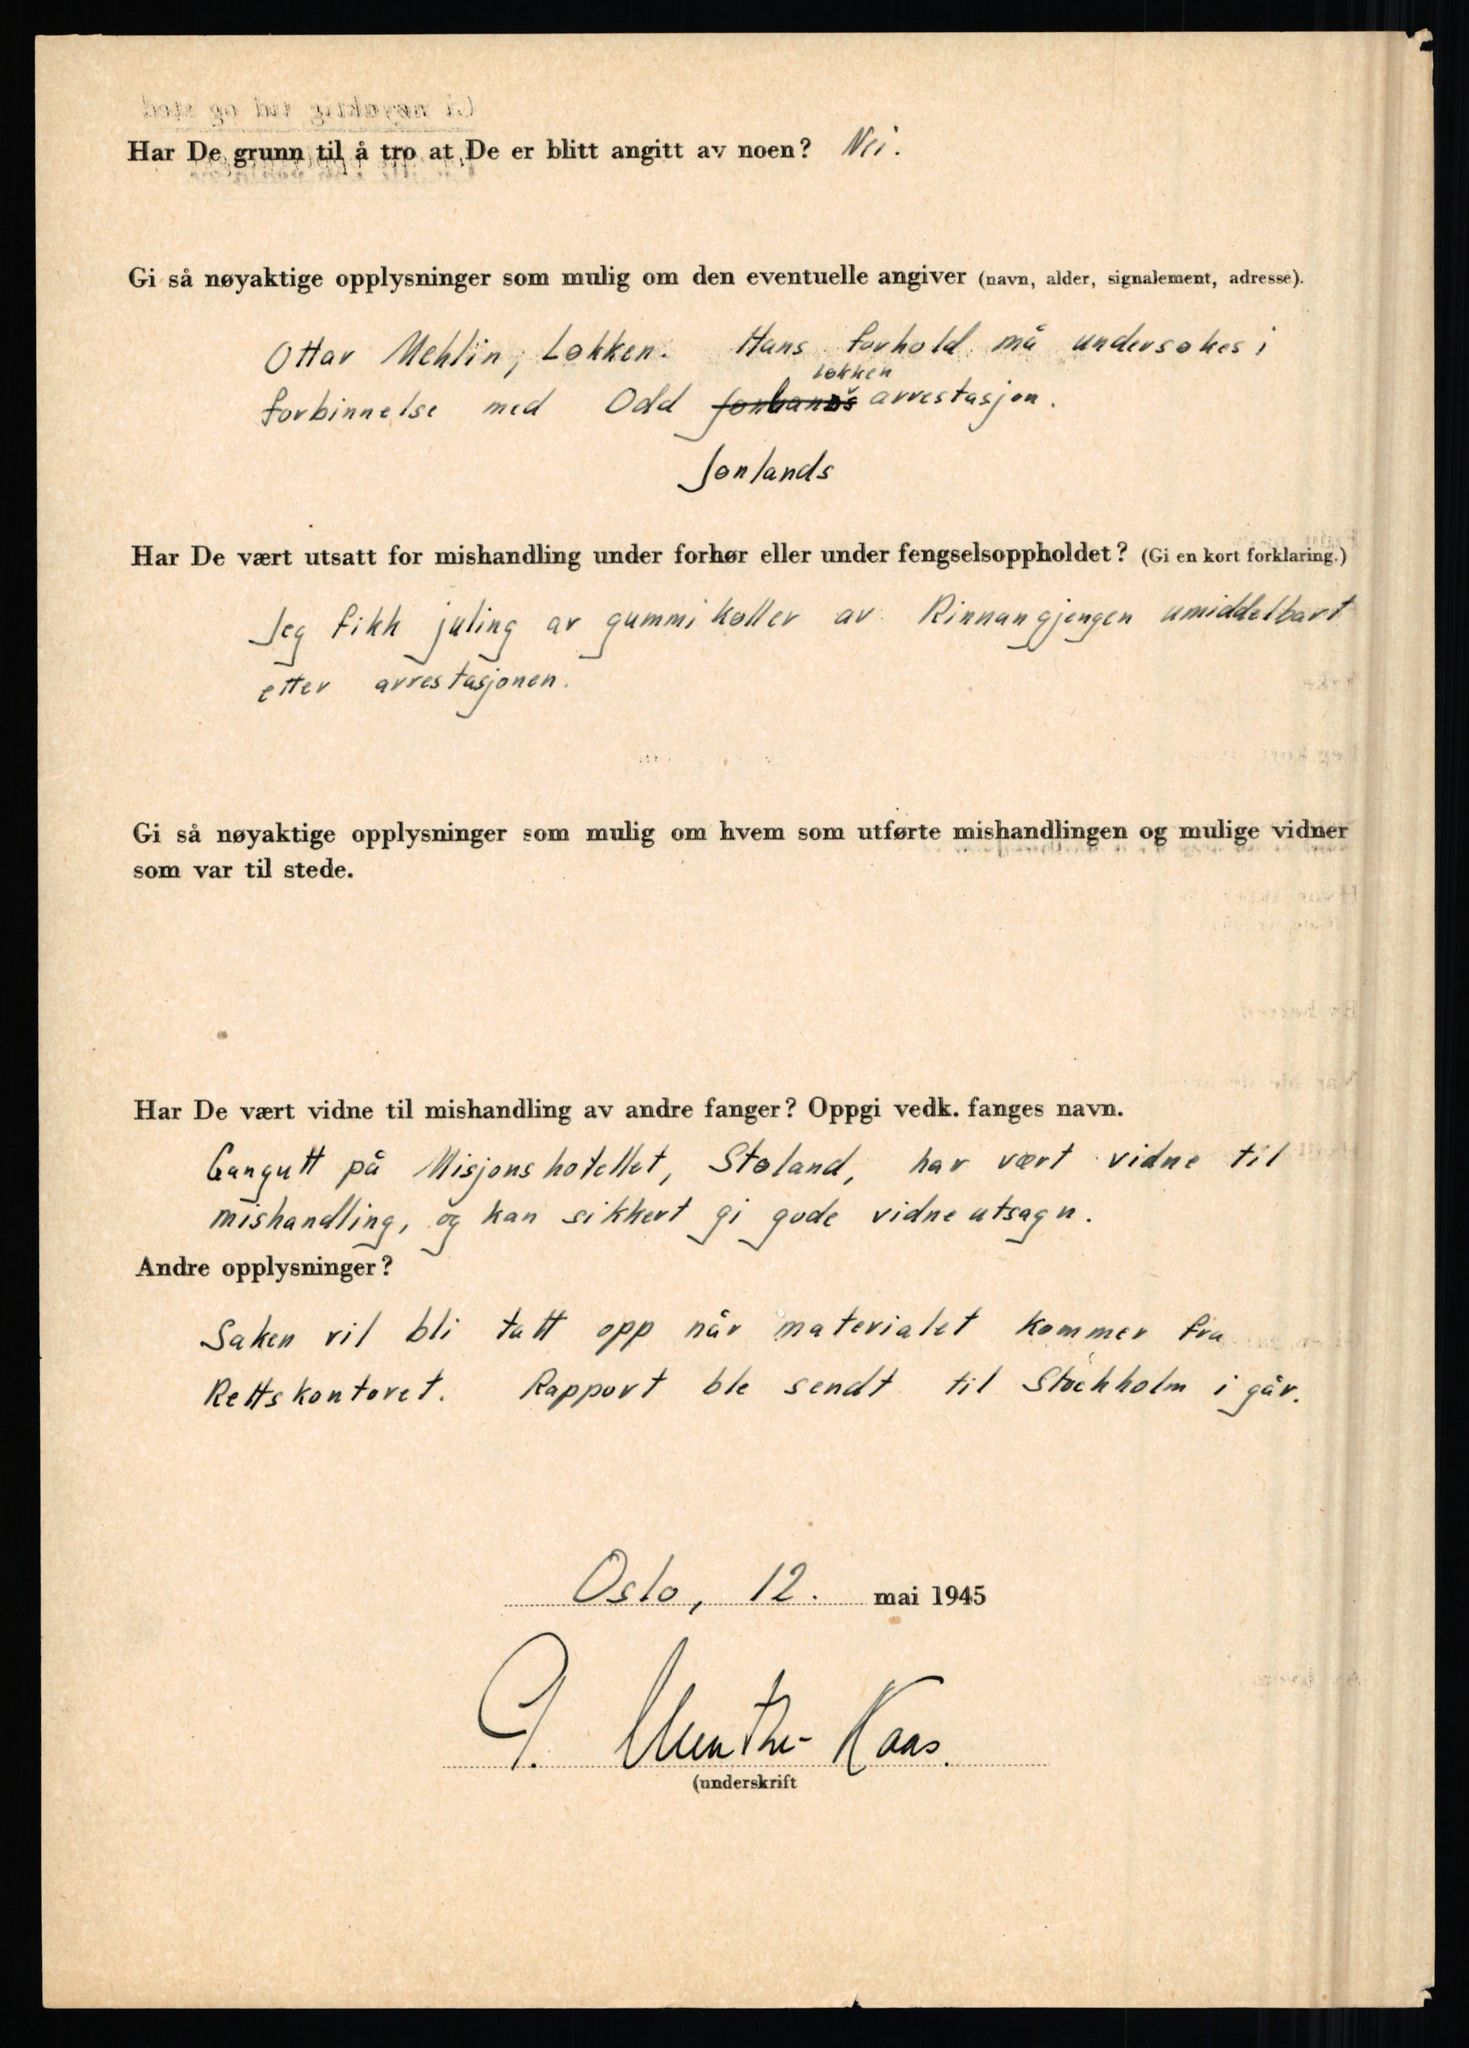 Har De grunn til å tro at De er blitt angitt av noen? Nei.
Gi så nøyaktige opplysninger som mulig om den eventuelle angiver (navn, alder, signalement, adresse).
Ottar Mehlin, Løkken. Hans forhold må undersøkes i
Løkken
forbinnelse med Odd arrestasjon.
Jønlands
Har De vært utsatt for mishandling under forhør eller under fengselsoppholdet? (Gi en kort forklaring.)
Jeg fikk juling av gummikøller av Rinnangjengen umiddelbart
etter arrestasjonen.
Gi så nøyaktige opplysninger som mulig om hvem som utførte mishandlingen og mulige vidner
som var til stede.
Har De vært vidne til mishandling av andre fanger? Oppgi vedk. fanges navn.
Gangutt på Misjonshotellet, Støland, har vært vidne til
mishandling, og kan sikkert gi gode vidneutsagn.
Andre opplysninger?
Saken vil bli tatt opp når materialet kommer fra
Rettskontoret. Rapport ble sendt til Stockholm i går.
Oslo, 12. mai 1945
G. Munthe-Kaas.
(underskrift